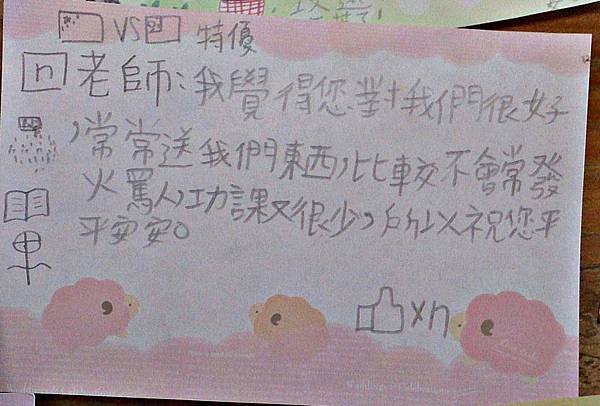 VS 特優
n 老師:我覺得您對我們很好
,常常送我們東西,比較不會常發
火罵人,功課又很少,所以祝您平
平安安。
xn